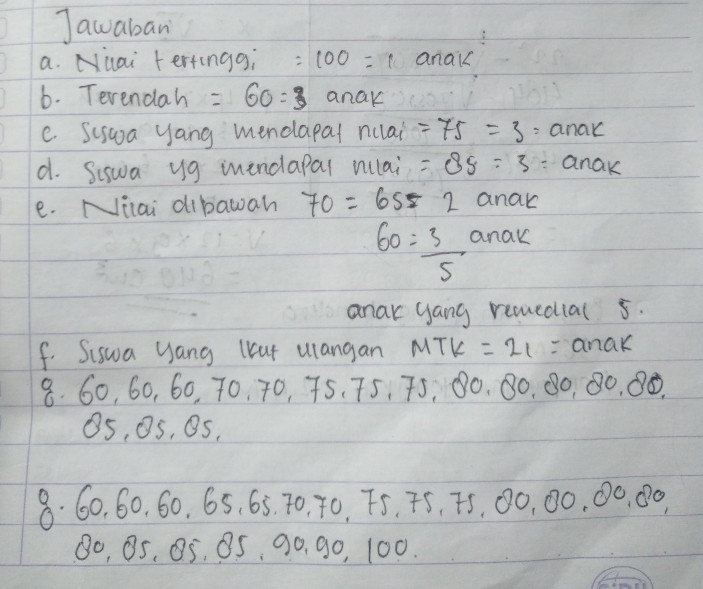 Jawaban
a. Nilai tertinggi = 100 = 1 anak
b. Terendah = 60 = 3 anak
c. Siswa yang mendapat nilai = 75 = 3 = anak
d. Siswa yg mendapat nilai = 85 = 3 = anak
e. Nilai dibawah 70 = 65 = 2 anak
60 = 3 anak
5
anak yang remedial 5.
f. Siswa yang ikut ulangan MTK = 21 = anak
g. 60, 60, 60, 70, 70, 75, 75, 75, 80, 80, 80, 80, 80,
85, 85, 85,
g. 60, 60, 60, 65, 65, 70, 70, 75, 75, 75, 80, 80, 80, 80,
80, 85, 85, 85, 90, 90, 100.